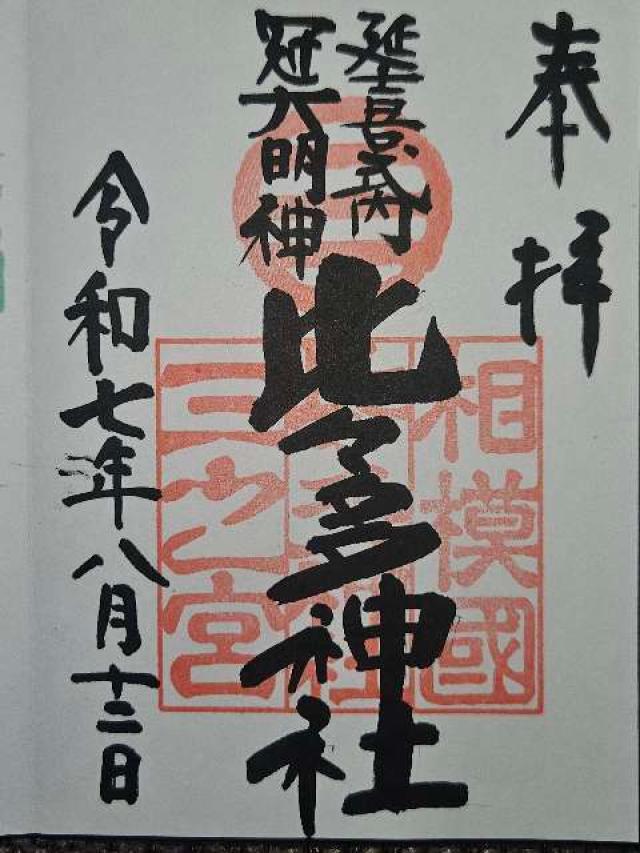 奉拝
延喜式内
冠大明神
比々多神社
相模國
三之宮
令和七年八月十二日